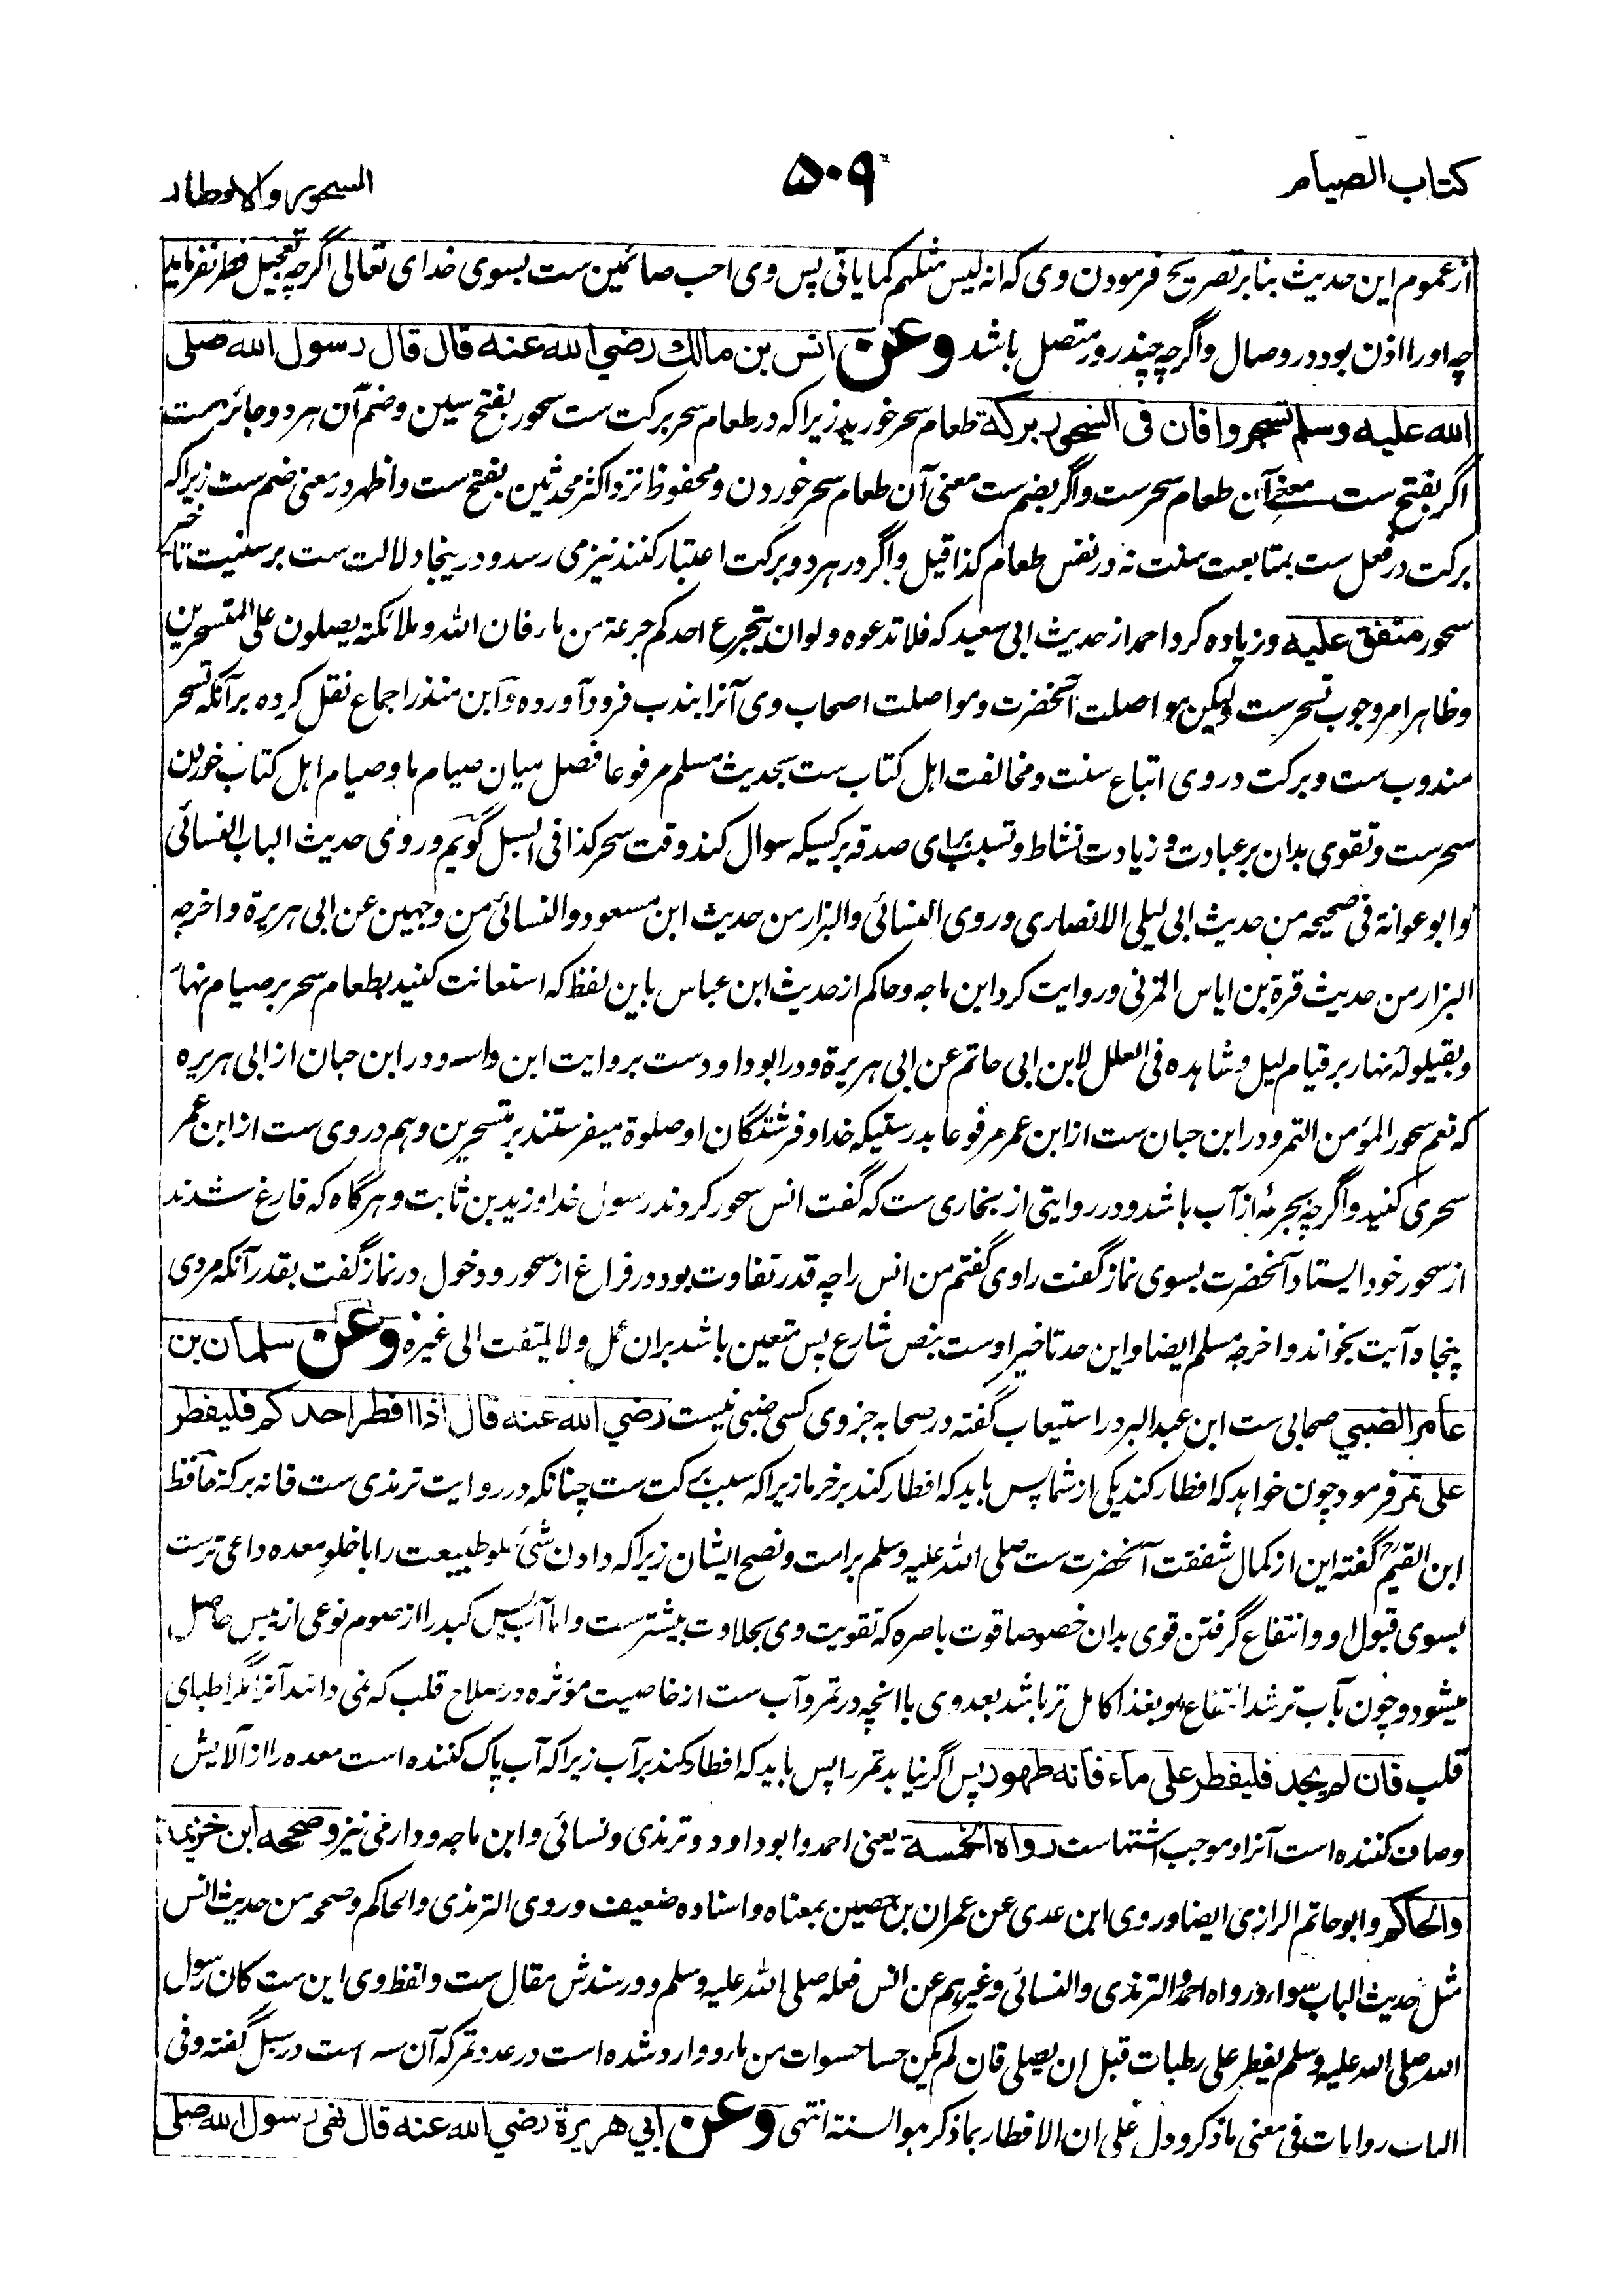 كتاب الصيام
۵۰۹
السحور والافطار
از عموم این حدیث بنا بر تصریح فرمودن وی که انه لیس مثلهم کما یاتی پس وی احب صائمین ست بسوی خدای تعالی اگرچه تعجیل فطر نفرماید
چه او را اذن بود در وصال و اگرچه چند روز متصل باشد وعن انس بن مالك رضي الله عنه قال قال رسول الله صلى
الله عليه وسلم تسحروا فان فى السحور بركة طعام سحر خورید زیرا که در طعام سحر برکت ست سحور بفتح سین و ضم آن هر دو جائز ست
اگر بفتح ست معنی آن طعام سحرست و اگر بضم ست معنی آن طعام سحر خوردن و محفوظ نزد اکثر محدثین بفتح ست و اظهر در معنی ضم ست زیرا که
برکت در فعل ست بمتابعت سنت نه در نفس طعام کذا قیل و اگر در هر دو برکت اعتبار کنند نیز می رسد و درینجا دلالت ست بر سنیت تاخیر
سحور متفق عليه و زیاده کرد احمد از حدیث ابی سعید که فلا تدعوه ولو ان یتجرع احدکم جرعة من ماء فان الله و ملائکته یصلون علی المتسحرین
و ظاهر امر وجوب تسحرست ولیکن مواصلت آنحضرت و مواصلت اصحاب وی آنرا بندب فرود آورده و ابن منذر اجماع نقل کرده بر آنکه تسحر
مندوب ست و برکت در وی اتباع سنت و مخالفت اهل کتاب ست بحدیث مسلم مرفوعا فصل میان صیام ما و صیام اهل کتاب خوردن
سحرست و تقوی بدان بر عبادت و زیادت نشاط و تسبب برای صدقه بر کسیکه سوال کند وقت سحر کذا فی السبل گویم و روی حدیث الباب النسائی
و ابو عوانة فی صحیحه من حدیث ابی لیلی الانصاری و روی النسائی والبزار من حدیث ابن مسعود والنسائی من وجهین عن ابی هریرة و اخرجه
البزار من حدیث قرة بن ایاس المزنی و روایت کرد ابن ماجه و حاکم از حدیث ابن عباس باین لفظ که استعانت کنید بطعام سحر بر صیام نهار
و بقیلولهٔ نهار بر قیام لیل و شاهده فی العلل لابن ابی حاتم عن ابی هریرة و در ابو داود ست بروایت ابن واسه و در ابن حبان از ابی هریره
که نعم سحور المؤمن التمر و در ابن حبان ست از ابن عمر مرفوعا بدرستیکه خدا و فرشتگان او صلوة میفرستند بر متسحرین و هم در وی ست از ابن عمر
سحری کنید و اگرچه بجرعهٔ از آب باشد و در روایتی از بخاری ست که گفت انس سحور کردند رسول خدا و زید بن ثابت و هرگاه که فارغ شدند
از سحور خود ایستاد آنحضرت بسوی نماز گفت راوی گفتم من انس را چه قدر تفاوت بود در فراغ از سحور و دخول در نماز گفت بقدر آنکه مردی
پنجاه آیت بخواند و اخرجه مسلم ایضا و این حد تاخیر اوست بنص شارع پس متعین باشد بران عمل ولا یلتفت الی غیره وعن سلمان بن
عامر الضبي صحابی ست ابن عبد البر در استیعاب گفته در صحابه جز وی کسی ضبی نیست رضي الله عنه قال اذا افطر احدكم فليفطر
على تمر فرمود چون خواهد که افطار کند یکی از شما پس باید که افطار کند بر خرما زیرا که سبب برکت ست چنانکه در روایت ترمذی ست فانه برکة حافظ
ابن القیم گفته این از کمال شفقت آنحضرت ست صلی الله علیه وسلم بر امت و نصح ایشان زیرا که دادن شئ حلو طبیعت را با خلو معده داعی ترست
بسوی قبول او و انتفاع گرفتن قوی بدان خصوصا قوت باصره که تقویت وی بحلاوت بیشترست و اما آب پس کبد را از صوم نوعی از یبس حاصل
میشود و چون بآب تر شد انتفاع او بغذا کامل تر باشد بعد وی با آنچه در تمر و آب ست از خاصیت موثره در صلاح قلب که نمی دانند آنرا مگر اطبای
قلب فان لم يجد فليفطر على ماء فانه طهور پس اگر نیابد تمر را پس باید که افطار کند بر آب زیرا که آب پاک کننده است معده را از آلایش
و صاف کننده است آنرا و موجب اشتهاست رواه الخمسة یعنی احمد و ابو داود و ترمذی و نسائی و ابن ماجه و دارمی نیز وصححه ابن خزيمة
والحاكم و ابو حاتم الرازی ایضا و روی ابن عدی عن عمران بن حصین بمعناه و اسناده ضعیف و روی الترمذی والحاکم و صححه من حدیث انس
مثل حدیث الباب سواء و رواه احمد والترمذی والنسائی وغیرهم عن انس فعله صلی الله علیه وسلم و در سندش مقال ست و لفظ وی این ست کان رسول
الله صلی الله علیه وسلم یفطر علی رطبات قبل ان یصلی فان لم یکن حسا حسوات من ماء و وارد شده است در عدد تمر که آن سه است در سبل گفته و فی
الباب روایات فی معنی ما ذکر و دل علی ان الافطار بما ذکر هو السنة انتهی وعن ابي هريرة رضي الله عنه قال نهى رسول الله صلى